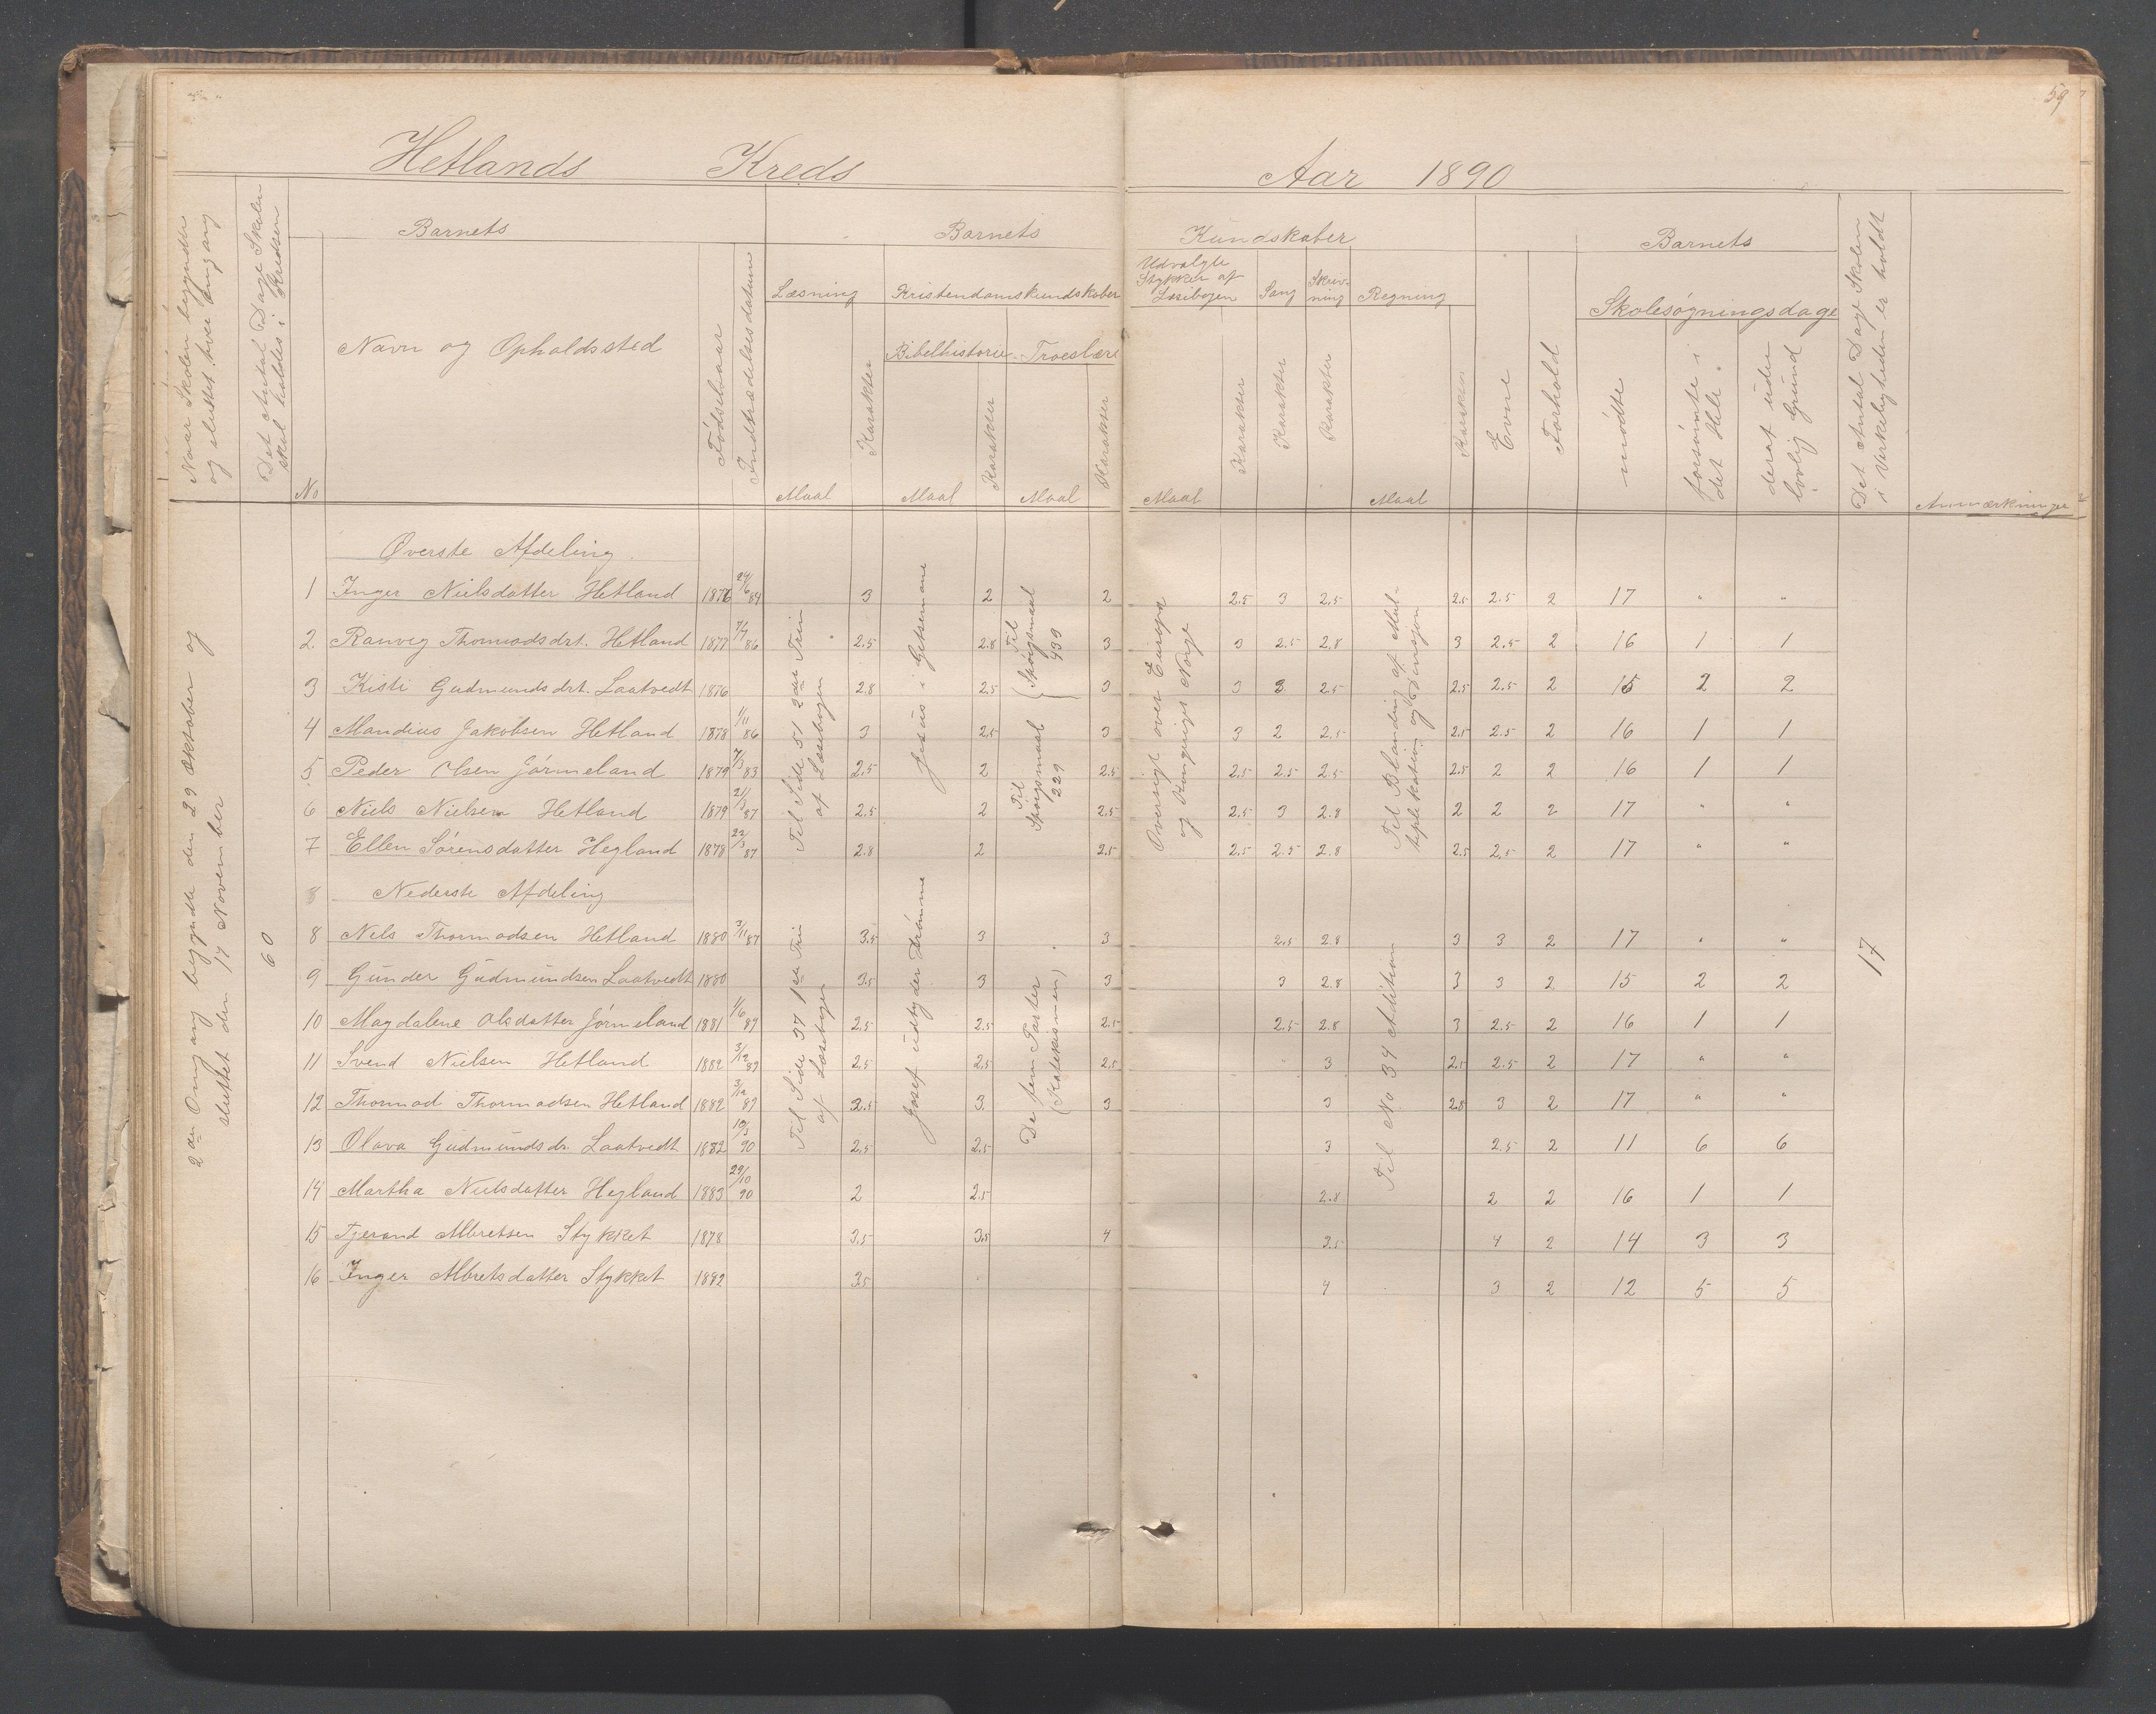 59
Hetlands Kreds Aar 1890
Naar Skolen begyndte og sluttet hver Omgang
Det Antal Dage Skolen skal holdes i Kredsen
Barnets
No
Navn og Opholdssted
Fødselsaar
Indtrædelsesdatum
Barnets Kundskaber
Læsning
Maal
Karakter
Kristendomskundskaber
Bibelhistorie
Maal
Karakter
Troeslære
Maal
Karakter
Udvalgte Stykker af Læsebogen
Maal
Karakter
Sang
Karakter
Skriv-ning
Karakter
Regning
Maal
Karakter
Barnets
Evne
Forhold
Skolesøgningsdage
mødte
forsømte i det Hele
deraf uden lovlig Grund
Det Antal Dage Skolen i Virkeligheden er holdt
Anmærkninger
2den Omgang begyndte den 29 Oktober og sluttet den 17 November
60
Øverste Afdeling
Til Side 51 2det Trin af Læsebogen
Jesus i Getsemane
Til Spørgsmaal 439
Til Spørgsmaal 229
Oversigt over Europa og Kongeriget Norge
Til Blanding af Multiplikation og Divisjon
1 Inger Nielsdatter Hetland 1876 24/6 84 3 2 2 2.5 3 2.5 2.5 2.5 2 17 " "
2. Ranveg Thormodsdrt. Hetland 1877 7/7 86 2.5 2.8 3 3 2.5 2.8 3 2.5 2 16 1 1
3 Kisti Gudmundsdrt. Laatvedt 1876 2.8 2.5 3 3 3 2.5 2.5 2.5 2 15 2 2
4 Mandius Jakobsen Hetland 1878 1/11 86 3 2.5 3 3 2 2.5 2.5 2.5 2 16 1 1
5 Peder Olsen Jørmeland 1879 7/3 83 2.5 2 2.5 2.5 2.5 2.5 2.5 2 2 16 1 1
6 Niels Nielsen Hetland 1879 21/3 87 2.5 2 2.5 2.5 3 2.8 2 2 2 17 " "
7 Ellen Sørensdatter Hegland 1878 22/3 87 2.8 2 2.5 2.5 2.5 2.8 2.5 2.5 2 17 " "
Nederste Afdeling
Til Side 37 1ste Trin af Læsebogen
Josef udtyder Drømme
De fem Parter (Katekismen)
Til No 34 Addition
17
8 Nels Thormodsen Hetland 1880 3/11 87 3.5 3 3 2.5 2.8 3 3 2 17 " "
9 Gunder Gudmundsen Laatvedt 1880 3.5 3 3 3 2.8 3 3 2 15 2 2
10 Magdalene Olsdatter Jørmeland 1881 1/6 89 2.5 2.5 2.5 2.5 2.8 3 2.5 2 16 1 1
11 Svend Nielsen Hetland 1882 3/12 89 2.5 2.5 2.5 3 2.5 2.5 2 17 " "
12 Thormod Thormodsen Hetland 1882 3/12 89 3.5 3 3 3 2.8 3 2 17 " "
13 Olava Gudmundsdr. Laatvedt 1882 10/3 90 2.5 2.5 3 2.5 2 11 6 6
14 Martha Nielsdatter Hegland 1883 29/10 90 2 2.5 2.8 2 2 16 1 1
15 Tjerand Albretsen Stykket 1878 3.5 3.5 4 3.5 4 2 14 3 3
16 Inger Albretsdatter Stykket 1882 3.5 4 3 2 12 5 5